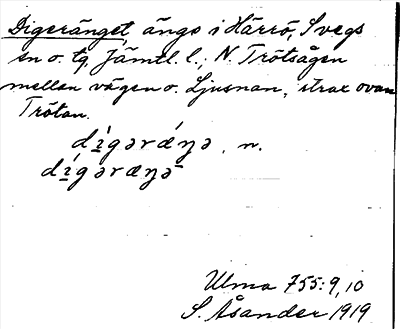 Digeränget, ängs i Härrö, Svegs
sn o. tg. Jämtl. l., N. Trötsågen
mellan vägen o. Ljusnan, strax ovan
Trötan.
dígərǽŋə, n.
dígəræŋə̄
Ulma 755:9,10
S. Åsander 1919